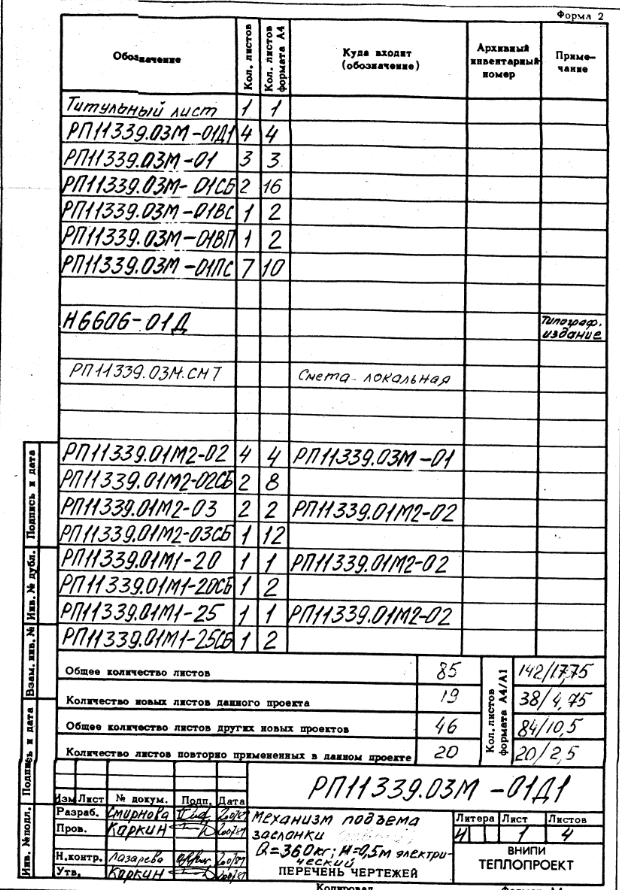 Форма 2
Обозначение Кол. листов Кол. листов формата А4 Куда входит (обозначение) Архивный инвентарный номер Приме-чание
Титульный лист 1 1
РП11339.03М-01Д1 4 4
РП11339.03М-01 3 3
РП11339.03М-01СБ 2 16
РП11339.03М-01ВС 1 2
РП11339.03М-01ВП 1 2
РП11339.03М-01ПС 7 10
Н6606-01Д Типограф. издание
РП11339.03М.СМТ Смета локальная
РП11339.01М2-02 4 4 РП11339.03М-01
РП11339.01М2-02СБ 2 8
РП11339.01М2-03 2 2 РП11339.01М2-02
РП11339.01М2-03СБ 1 12
РП11339.01М1-20 1 1 РП11339.01М2-02
РП11339.01М1-20СБ 1 2
РП11339.01М1-25 1 1 РП11339.01М2-02
РП11339.01М1-25СБ 1 2
Общее количество листов 85 Кол. листов формата А4/А1 142/17,75
Количество новых листов данного проекта 19 38/4,75
Общее количество листов других новых проектов 46 84/10,5
Количество листов повторно примененных в данном проекте 20 20/2,5
Подпись и дата
Инв. № дубл.
Взам. инв. №
Подпись и дата
Инв. № подл.
РП11339.03М-01Д1
Изм Лист № докум. Подп. Дата
Разраб. Смирнова
Пров. Каркин
Н.контр. Лазарева
Утв. Каркин
Механизм подъема
заслонки
Q=360кг; Н=0,5м электри-
ческий
ПЕРЕЧЕНЬ ЧЕРТЕЖЕЙ
Литера Лист Листов
И 1 4
ВНИПИ
ТЕПЛОПРОЕКТ
Копировал
Формат А4